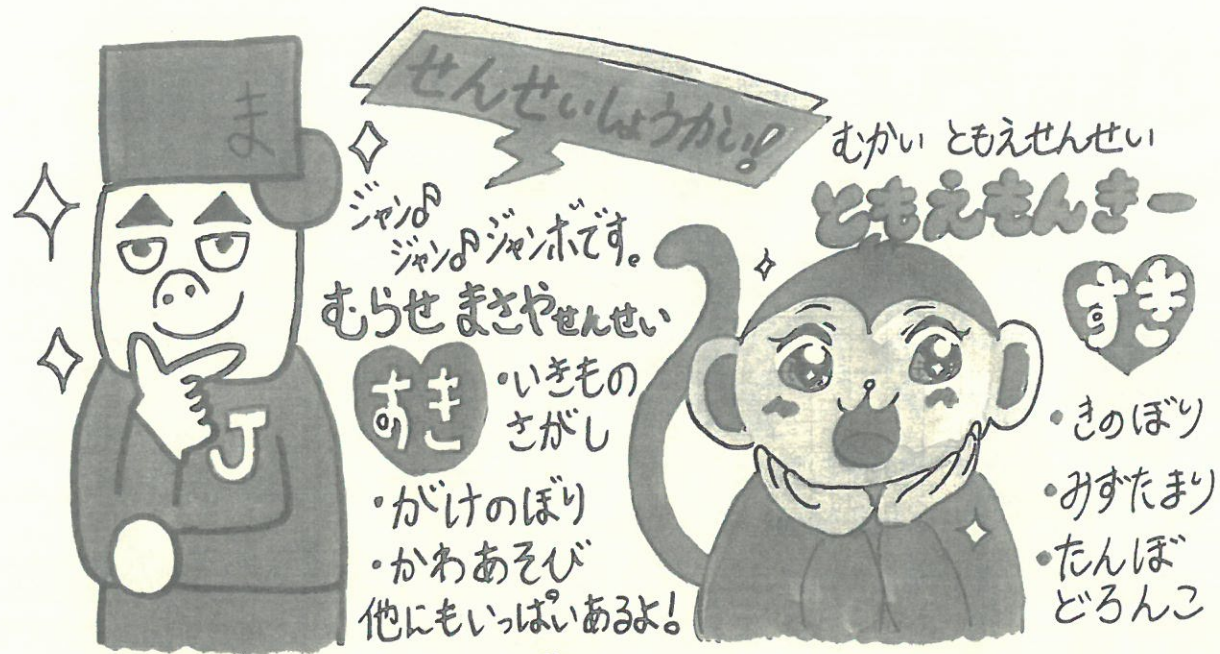 せんせいしょうかい!
ま
ジャン♪
ジャン♪ジャンボです。
むらせ まさやせんせい
すき
・いきもの
さがし
・がけのぼり
・かわあそび
他にもいっぱいあるよ!
J
むかい ともえせんせい
ともえもんきー
すき
・きのぼり
・みずたまり
・たんぼ
どろんこ